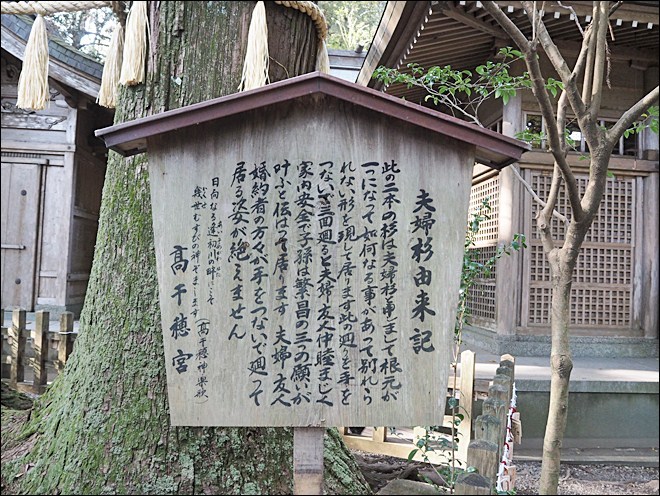 夫婦杉由来記
此二本の杉は夫婦杉と申しまして根元が
一つになって如何なる事があって別れら
れない形を現して居ります此の廻りを手を
つないで三回廻ると夫婦友人仲睦まじく
家内安全で子孫は繁昌の三つの願いが
叶ふと伝はって居ります 夫婦・友人
婚約者の方々が手をつないで廻って
居る姿が絶えません
日向なる逢初川の畔にこそ
幾世むすびの神ぞまします
(高千穂神楽歌)
高千穂宮